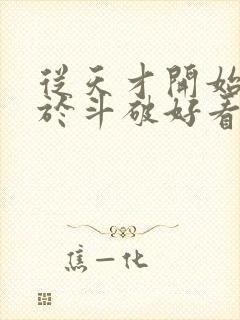 從天才開始
於斗破好看
焦一化